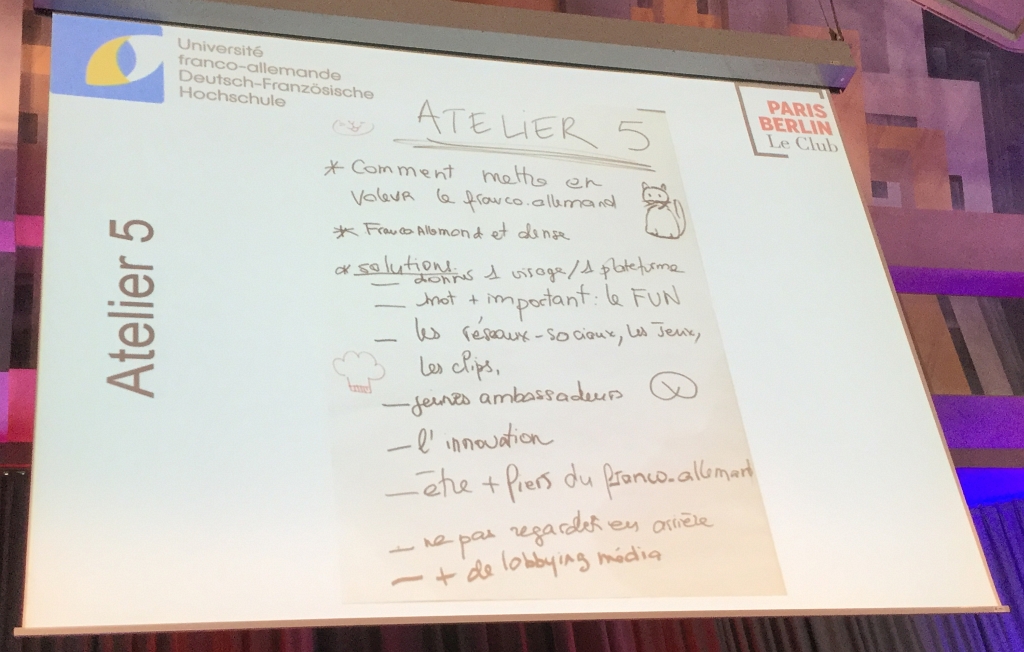 Université
franco-allemande
Deutsch-Französische
Hochschule
PARIS
BERLIN
Le Club
Atelier 5
ATELIER 5
* Comment mettre en
valeur le franco.allemand
* Franco Allemand et dense
* solutions
— donner 1 visage/1 plateforme
— mot + important: le FUN
— les réseaux-sociaux, les Jeux,
les clips,
— jeunes ambassadeurs
— l'innovation
— être + fiers du franco-allemand
— ne pas regarder en arrière
— + de lobbying média